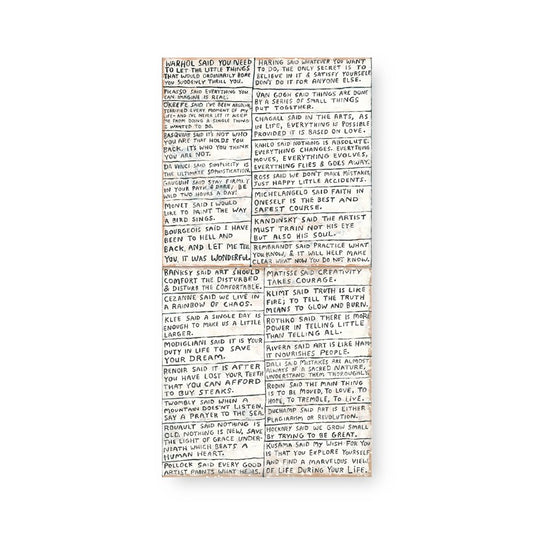 WARHOL SAID YOU NEED
TO LET THE LITTLE THINGS
THAT WOULD ORDINARILY BORE
YOU SUDDENLY THRILL YOU.
PICASSO SAID EVERYTHING YOU
CAN IMAGINE IS REAL.
O'KEEFFE SAID I'VE BEEN ABSOLUTELY
TERRIFIED EVERY MOMENT OF MY
LIFE AND I'VE NEVER LET IT KEEP
ME FROM DOING A SINGLE THING
I WANTED TO DO.
BASQUIAT SAID IT'S NOT WHO
YOU ARE THAT HOLDS YOU
BACK, IT'S WHO YOU THINK
YOU ARE NOT.
DA VINCI SAID SIMPLICITY IS
THE ULTIMATE SOPHISTICATION.
GAUGUIN SAID STAY FIRMLY
IN YOUR PATH & DARE, BE
WILD TWO HOURS A DAY!
MONET SAID I WOULD
LIKE TO PAINT THE WAY
A BIRD SINGS.
BOURGEOIS SAID I HAVE
BEEN TO HELL AND
BACK, AND LET ME TELL
YOU, IT WAS WONDERFUL.
HARING SAID WHATEVER YOU WANT
TO DO, THE ONLY SECRET IS TO
BELIEVE IN IT & SATISFY YOURSELF
DON'T DO IT FOR ANYONE ELSE.
VAN GOGH SAID THINGS ARE DONE
BY A SERIES OF SMALL THINGS
PUT TOGETHER.
CHAGALL SAID IN THE ARTS, AS
IN LIFE, EVERYTHING IS POSSIBLE
PROVIDED IT IS BASED ON LOVE.
KAHLO SAID NOTHING IS ABSOLUTE.
EVERYTHING CHANGES. EVERYTHING
MOVES, EVERYTHING EVOLVES,
EVERYTHING FLIES & GOES AWAY.
ROSS SAID WE DON'T MAKE MISTAKES
JUST HAPPY LITTLE ACCIDENTS.
MICHELANGELO SAID FAITH IN
ONESELF IS THE BEST AND
SAFEST COURSE.
KANDINSKY SAID THE ARTIST
MUST TRAIN NOT HIS EYE
BUT ALSO HIS SOUL.
REMBRANDT SAID PRACTICE WHAT
YOU KNOW, & IT WILL HELP MAKE
CLEAR WHAT NOW YOU DO NOT KNOW.
BANKSY SAID ART SHOULD
COMFORT THE DISTURBED
& DISTURB THE COMFORTABLE.
CEZANNE SAID WE LIVE IN
A RAINBOW OF CHAOS.
KLEE SAID A SINGLE DAY IS
ENOUGH TO MAKE US A LITTLE
LARGER.
MODIGLIANI SAID IT IS YOUR
DUTY IN LIFE TO SAVE
YOUR DREAM.
RENOIR SAID IT IS AFTER
YOU HAVE LOST YOUR TEETH
THAT YOU CAN AFFORD
TO BUY STEAKS.
TWOMBLY SAID WHEN A
MOUNTAIN DOESN'T LISTEN,
SAY A PRAYER TO THE SEA.
ROUAULT SAID NOTHING IS
OLD, NOTHING IS NEW, SAVE
THE LIGHT OF GRACE UNDER-
NEATH WHICH BEATS A
HUMAN HEART.
POLLOCK SAID EVERY GOOD
ARTIST PAINTS WHAT HE IS.
MATISSE SAID CREATIVITY
TAKES COURAGE.
KLIMT SAID TRUTH IS LIKE
FIRE; TO TELL THE TRUTH
MEANS TO GLOW AND BURN.
ROTHKO SAID THERE IS MORE
POWER IN TELLING LITTLE
THAN TELLING ALL.
RIVERA SAID ART IS LIKE HAM
IT NOURISHES PEOPLE.
DALI SAID MISTAKES ARE ALMOST
ALWAYS OF A SACRED NATURE,
UNDERSTAND THEM THOROUGHLY.
RODIN SAID THE MAIN THING
IS TO BE MOVED, TO LOVE, TO
HOPE, TO TREMBLE, TO LIVE.
DUCHAMP SAID ART IS EITHER
PLAGIARISM OR REVOLUTION.
HOCKNEY SAID WE GROW SMALL
BY TRYING TO BE GREAT.
KUSAMA SAID MY WISH FOR YOU
IS THAT YOU EXPLORE YOURSELF
AND FIND A MARVELOUS VIEW
OF LIFE DURING YOUR LIFE.